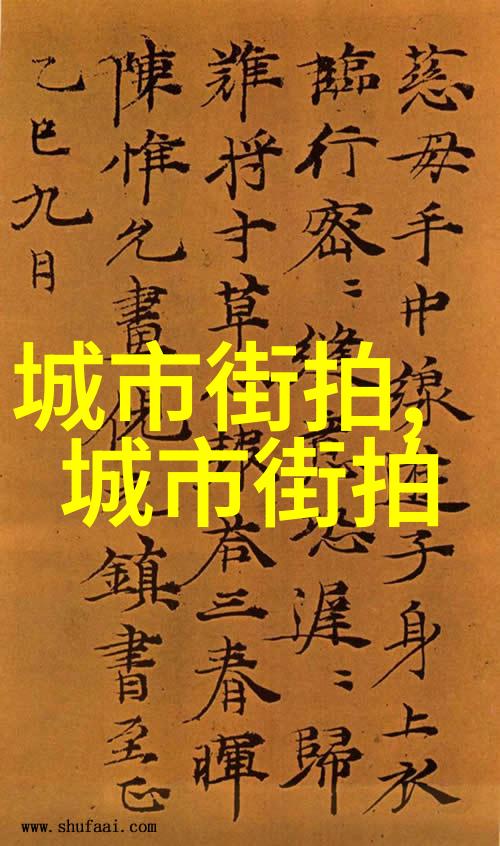 慈母手中線遊子身上衣
臨行密〻縫意恐遲〻歸
難将寸草心報荅三春暉
陳惟允畫倪元鎮書至正
乙巳九月
城市街拍,
城市街拍
www.shufaai.com